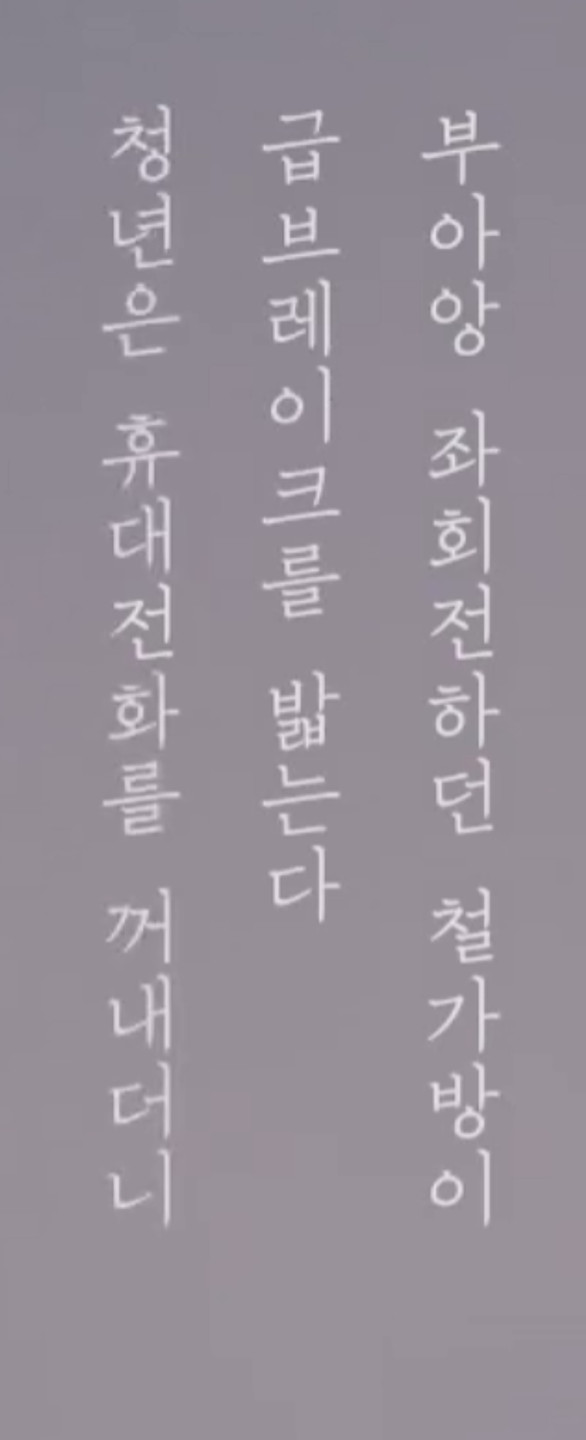 부아앙 좌회전하던 철가방이
급브레이크를 밟는다
청년은 휴대전화를 꺼내더니